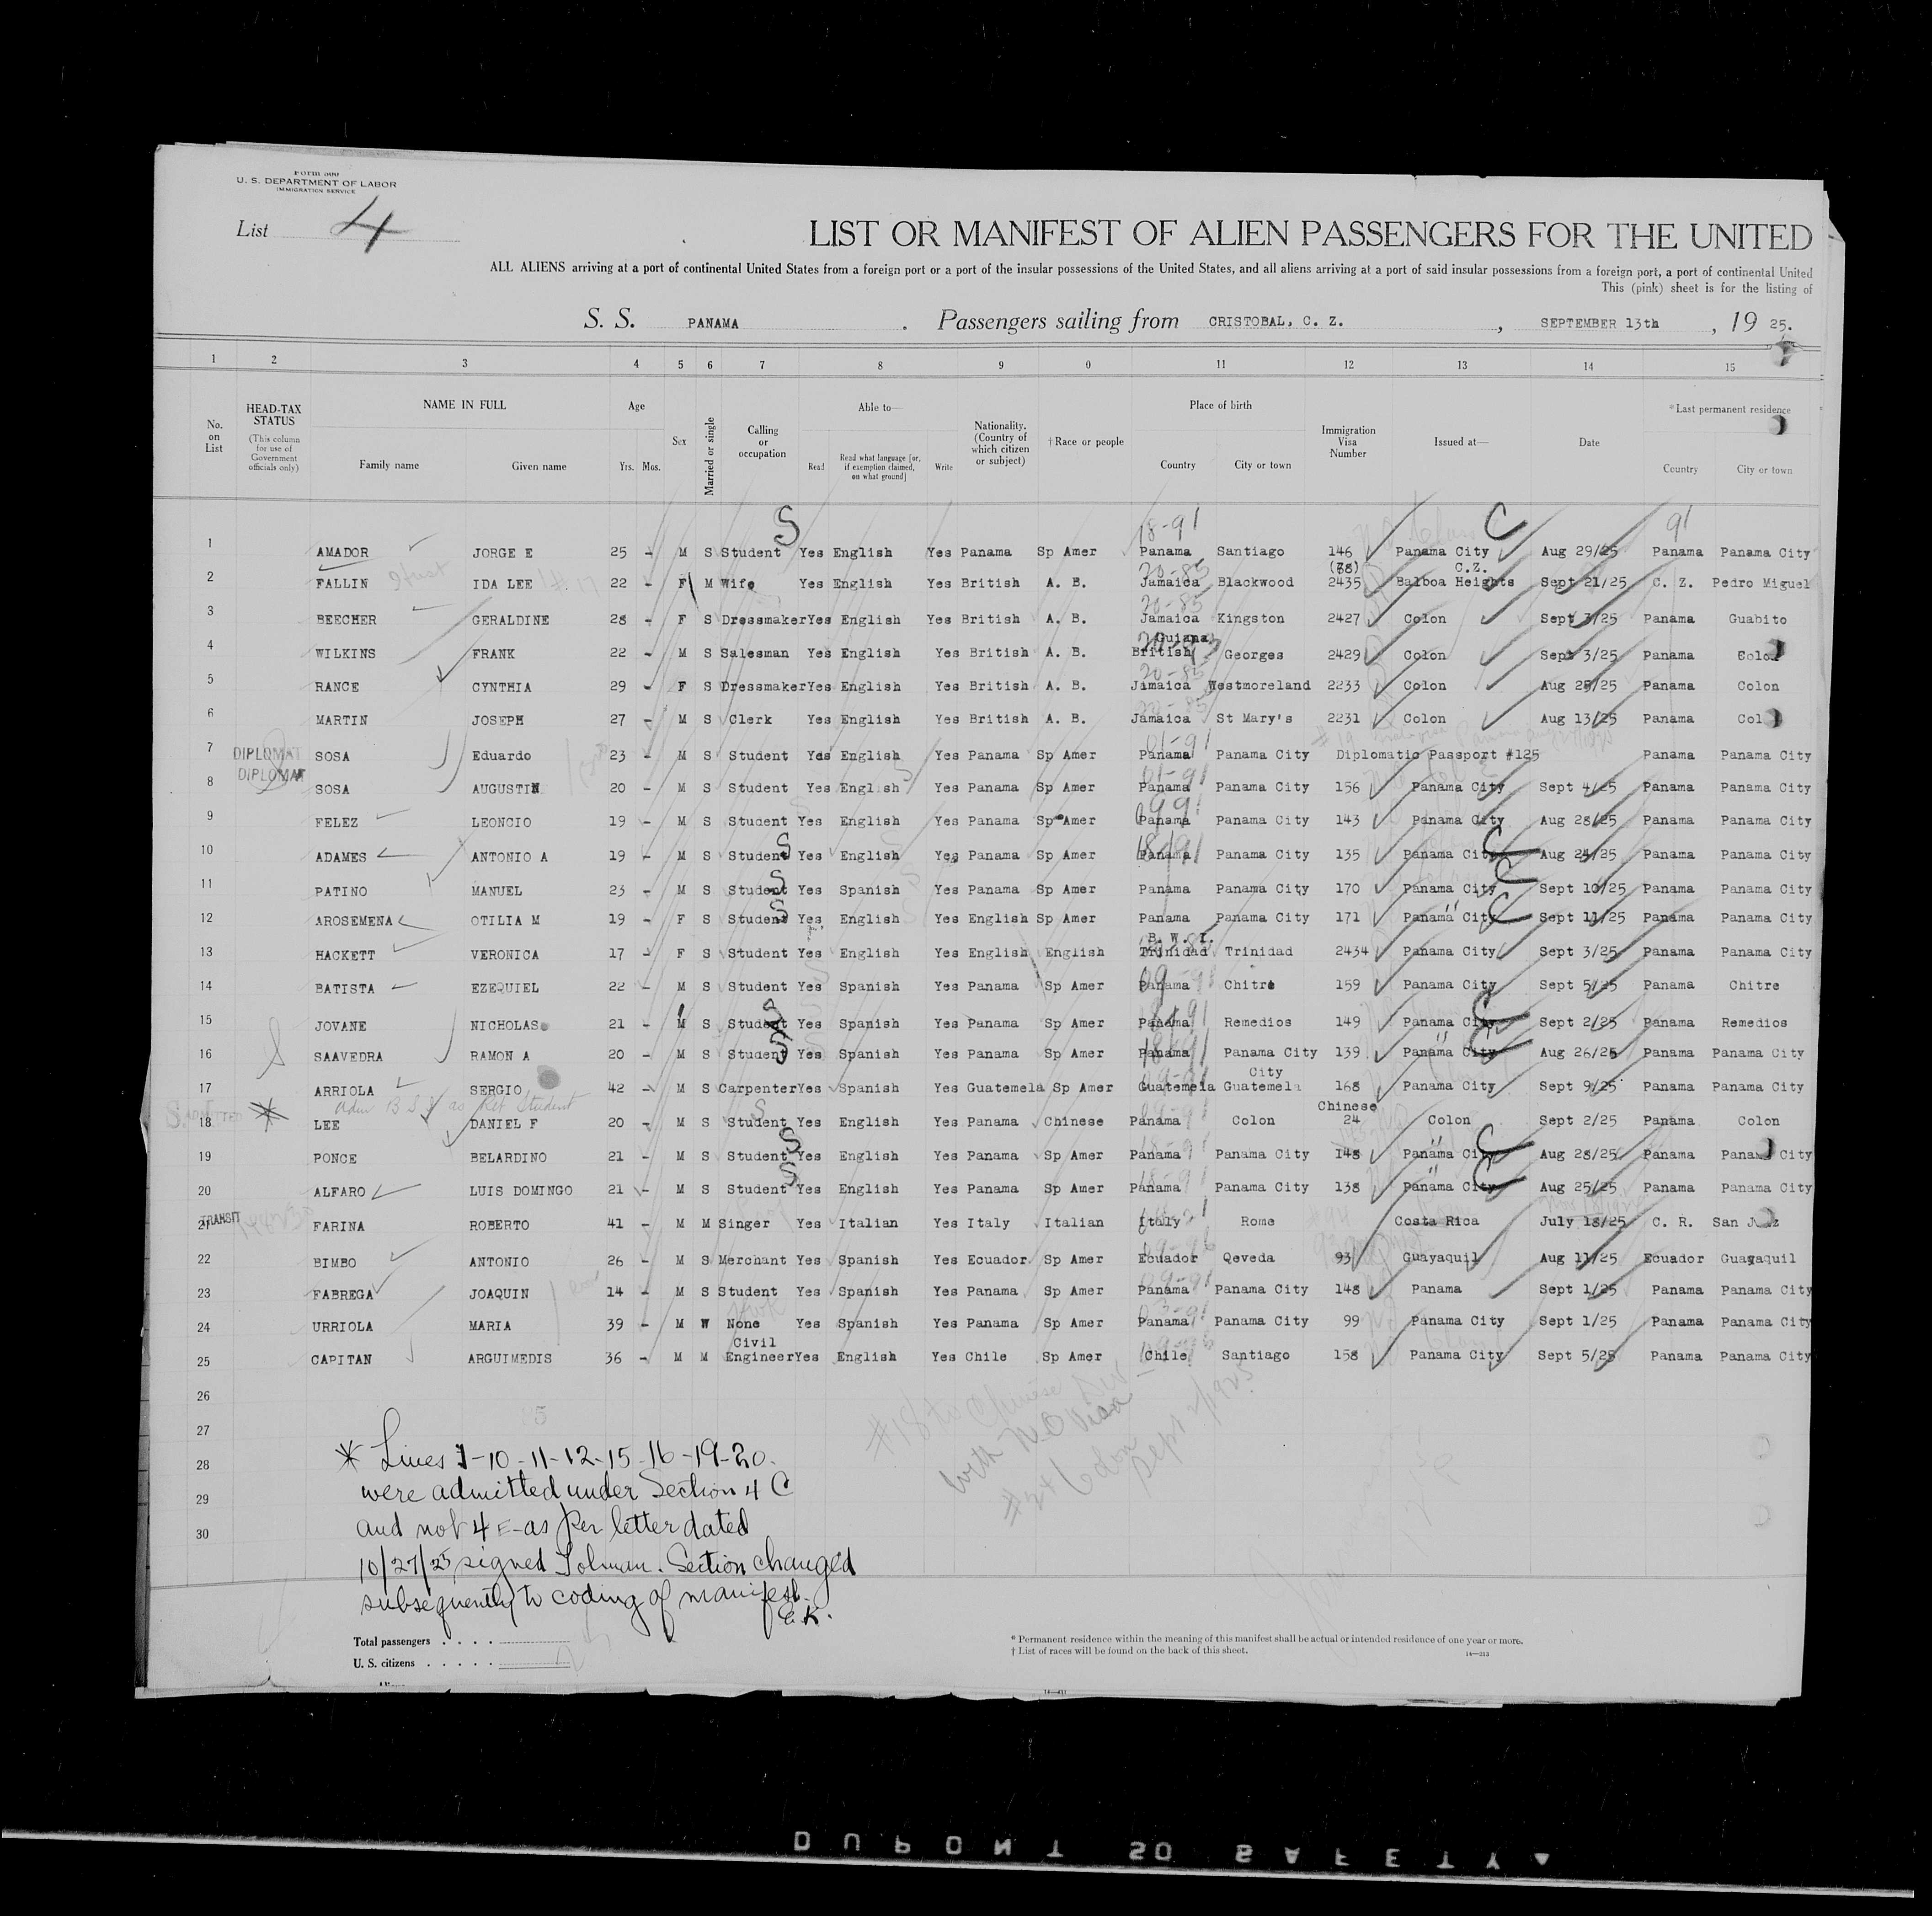 FORM 500
U. S. DEPARTMENT OF LABOR
IMMIGRATION SERVICE
List 4
LIST OR MANIFEST OF ALIEN PASSENGERS FOR THE UNITED
ALL ALIENS arriving at a port of continental United States from a foreign port or a port of the insular possessions of the United States, and all aliens arriving at a port of said insular possessions from a foreign port, a port of continental United
This (pink) sheet is for the listing of
S. S. PANAMA . Passengers sailing from CRISTOBAL, C. Z. , SEPTEMBER 13th , 19 25.
1 2 3 4 5 6 7 8 9 0 11 12 13 14 15
No. on List HEAD-TAX STATUS (This column for use of Government officials only) NAME IN FULL Family name Given name Age Yrs. Mos. Sex Married or single Calling or occupation Able to— Read Read what language [or, if exemption claimed, on what ground] Write Nationality. (Country of which citizen or subject) † Race or people Place of birth Country City or town Immigration Visa Number Issued at— Date * Last permanent residence Country City or town
18-91 91
1 AMADOR JORGE E 25 - M S Student S Yes English Yes Panama Sp Amer Panama Santiago 146 Panama City C Aug 29/25 Panama Panama City
20-85 (78) C.Z.
2 FALLIN IDA LEE 22 - F M Wife Yes English Yes British A. B. Jamaica Blackwood 2435 Balboa Heights Sept 21/25 C. Z. Pedro Miguel
20-85
3 BEECHER GERALDINE 28 - F S Dressmaker Yes English Yes British A. B. Jamaica Kingston 2427 Colon Sept 3/25 Panama Guabito
Guiana
4 WILKINS FRANK 22 - M S Salesman Yes English Yes British A. B. British Georges 2429 Colon Sept 3/25 Panama Colon
20-85
5 RANCE CYNTHIA 29 - F S Dressmaker Yes English Yes British A. B. Jamaica Westmoreland 2233 Colon Aug 25/25 Panama Colon
20-85
6 MARTIN JOSEPH 27 - M S Clerk Yes English Yes British A. B. Jamaica St Mary's 2231 Colon Aug 13/25 Panama Col
01-91
7 DIPLOMAT SOSA Eduardo 23 - M S Student Yes English Yes Panama Sp Amer Panama Panama City Diplomatic Passport #125 Panama Panama City
01-91
8 DIPLOMAT SOSA AUGUSTIN 20 - M S Student Yes English Yes Panama Sp Amer Panama Panama City 156 Panama City Sept 4/25 Panama Panama City
9 FELEZ LEONCIO 19 - M S Student Yes English Yes Panama Sp Amer Panama Panama City 143 Panama City Aug 28/25 Panama Panama City
10 ADAMES ANTONIO A 19 - M S Student S Yes English Yes Panama Sp Amer Panama Panama City 135 Panama City C Aug 24/25 Panama Panama City
11 PATINO MANUEL 23 - M S Student S Yes Spanish Yes Panama Sp Amer Panama Panama City 170 Panama City C Sept 10/25 Panama Panama City
12 AROSEMENA OTILIA M 19 - F S Student S Yes English Yes English Sp Amer Panama Panama City 171 Panama City C Sept 11/25 Panama Panama City
B. W. I.
13 HACKETT VERONICA 17 - F S Student Yes English Yes English English Trinidad Trinidad 2434 Panama City Sept 3/25 Panama Panama City
14 BATISTA EZEQUIEL 22 - M S Student Yes Spanish Yes Panama Sp Amer Panama Chitre 159 Panama City Sept 5/25 Panama Chitre
15 JOVANE NICHOLAS 21 - M S Student S Yes Spanish Yes Panama Sp Amer Panama Remedios 149 Panama City C Sept 2/25 Panama Remedios
16 SAAVEDRA RAMON A 20 - M S Student S Yes Spanish Yes Panama Sp Amer Panama Panama City 139 Panama City C Aug 26/25 Panama Panama City
City
17 ARRIOLA SERGIO 42 - M S Carpenter Yes Spanish Yes Guatemela Sp Amer Guatemela Guatemela 168 Panama City Sept 9/25 Panama Panama City
Adm B S I as Ret Student Chinese
18 ADMITTED * LEE DANIEL F 20 - M S Student Yes English Yes Panama Chinese Panama Colon 24 Colon Sept 2/25 Panama Colon
19 PONCE BELARDINO 21 - M S Student S Yes English Yes Panama Sp Amer Panama Panama City 148 Panama City C Aug 28/25 Panama Panama City
20 ALFARO LUIS DOMINGO 21 - M S Student S Yes English Yes Panama Sp Amer Panama Panama City 138 Panama City C Aug 25/25 Panama Panama City
21 TRANSIT FARINA ROBERTO 41 - M M Singer Yes Italian Yes Italy Italian Italy Rome Costa Rica July 18/25 C. R. San
22 BIMBO ANTONIO 26 - M S Merchant Yes Spanish Yes Ecuador Sp Amer Ecuador Qeveda 93 Guayaquil Aug 11/25 Ecuador Guayaquil
23 FABREGA JOAQUIN 14 - M S Student Yes Spanish Yes Panama Sp Amer Panama Panama City 148 Panama Sept 1/25 Panama Panama City
24 URRIOLA MARIA 39 - M W None Yes Spanish Yes Panama Sp Amer Panama Panama City 99 Panama City Sept 1/25 Panama Panama City
Civil
25 CAPITAN ARGUIMEDIS 36 - M M Engineer Yes English Yes Chile Sp Amer Chile Santiago 158 Panama City Sept 5/25 Panama Panama City
26
27
28
29
30
#18 to Chinese
with N.O Visa
#24 Colon Sept 2/1925
* Lines 1-10-11-12-15-16-19-20.
were admitted under Section 4 C
and not 4 E-as per letter dated
10/27/25 signed Tolman. Section changed
subsequently to coding of manifest.
E.K.
Total passengers . . . .
U. S. citizens . . . . .
* Permanent residence within the meaning of this manifest shall be actual or intended residence of one year or more.
† List of races will be found on the back of this sheet.
14—213
DUPONT SO SAFETY